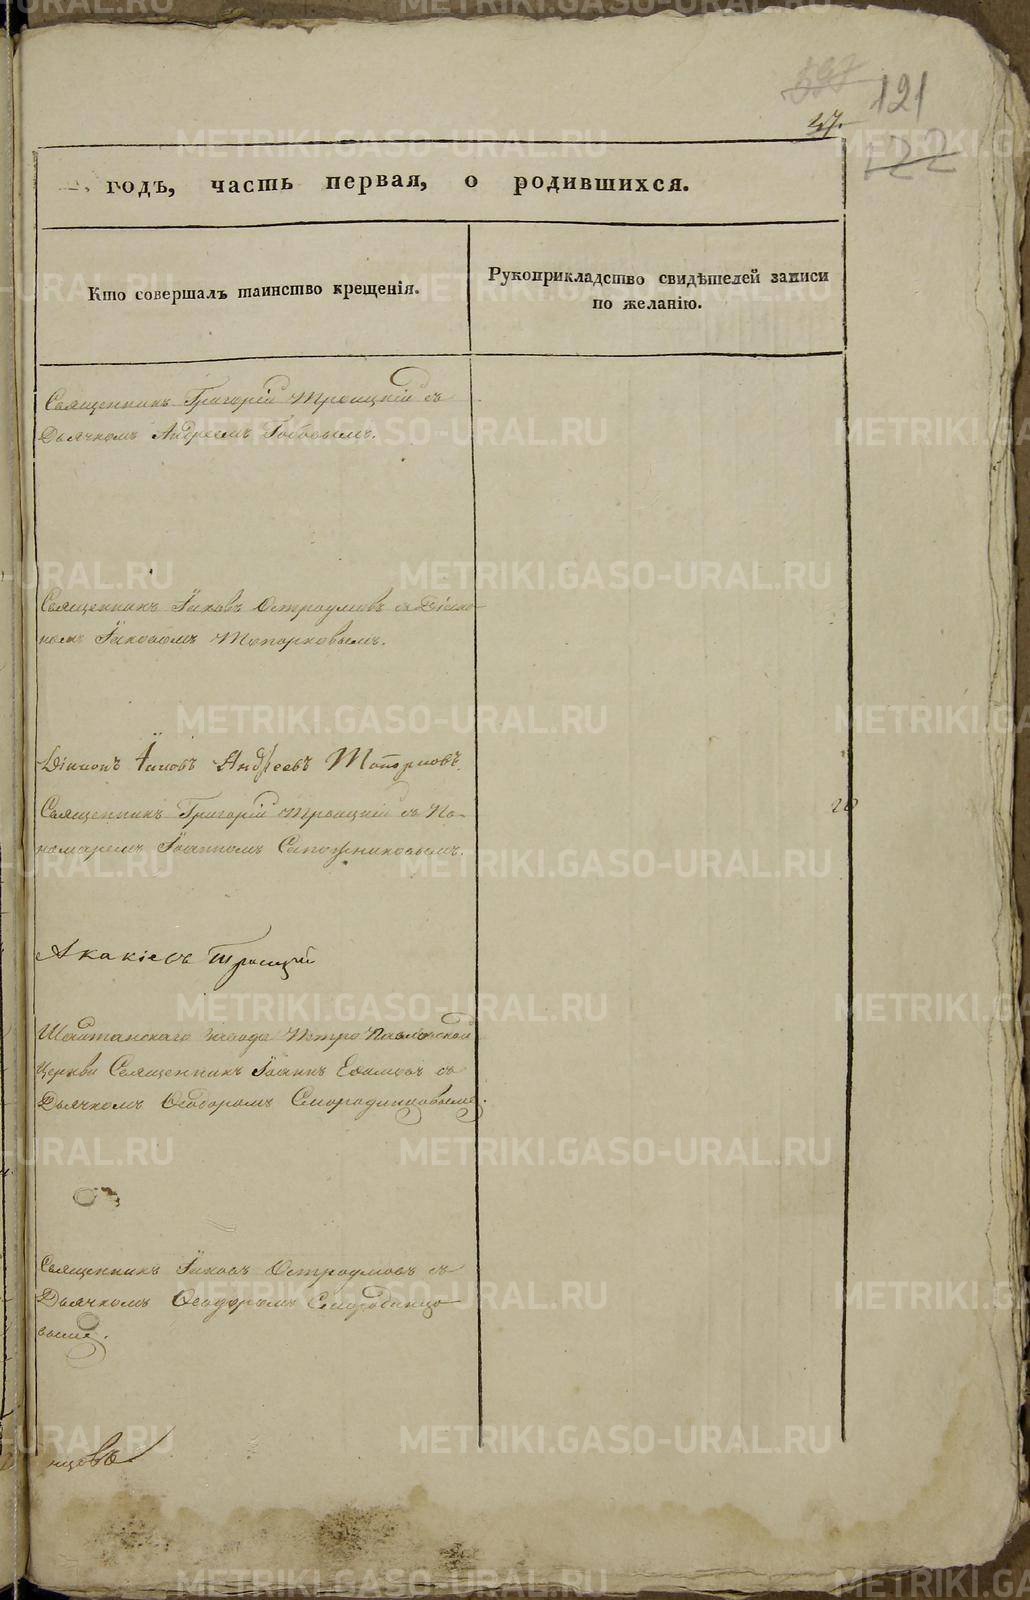 397
121
47.
122
годъ, часть первая, о родившихся.
Кто совершалъ таинство крещенія.
Рукоприкладство свидѣтелей записи
по желанію.
Священникъ Григорій Троицкій съ
Дьячкомъ Андреемъ
Священникъ Іаковъ Остроумовъ съ Діако-
номъ Іаковомъ Топорковымъ.
Діаконъ Іаковъ Андреевъ Топорковъ.
Священникъ Григорій Троицкій съ По-
номаремъ Іоанномъ Сапожниковымъ.
20
Акакіевъ Троицкій
Шайтанскаго завода Петро Павловской
Церкви Священникъ Іоаннъ Ефимовъ съ
Дьячкомъ Ѳеодоромъ Смородинцовымъ.
Священникъ Іаковъ Остроумовъ съ
Дьячкомъ Ѳеодоромъ Смородинцо
вымъ.
нцовъ.
METRIKI.GASO-URAL.RU